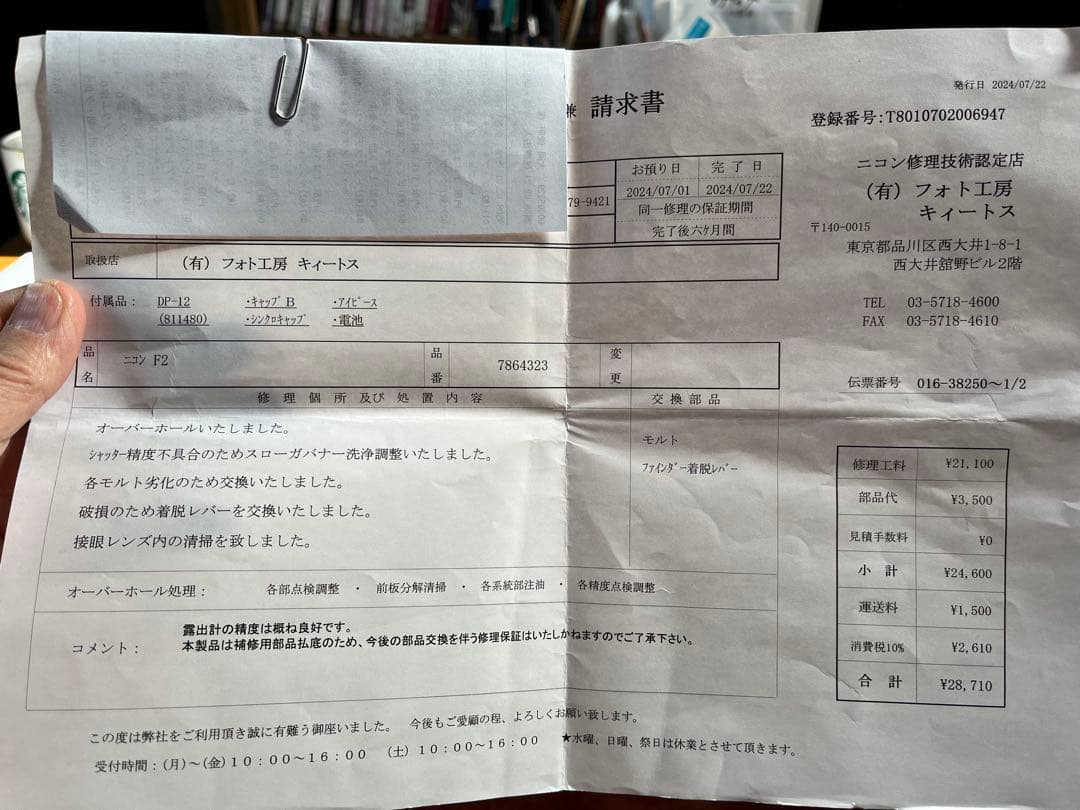 兼 請求書
発行日 2024/07/22
登録番号:T8010702006947
ニコン修理技術認定店
(有) フォト工房
キィートス
〒140-0015
東京都品川区西大井1-8-1
西大井舘野ビル2階
TEL 03-5718-4600
FAX 03-5718-4610
伝票番号 016-38250～1/2
79-9421
お預り日 完了日
2024/07/01 2024/07/22
同一修理の保証期間
完了後六ケ月間
取扱店 (有) フォト工房 キィートス
付属品: DP-12 ・キャップB ・アイピース
(811480) ・シンクロキャップ ・電池
品名 ニコン F2 品番 7864323 変更
修理個所及び処置内容 交換部品
オーバーホールいたしました。
シャッター精度不具合のためスローガバナー洗浄調整いたしました。
各モルト劣化のため交換いたしました。
破損のため着脱レバーを交換いたしました。
接眼レンズ内の清掃を致しました。
モルト
ファインダー着脱レバー
オーバーホール処理: 各部点検調整 ・ 前板分解清掃 ・ 各系統部注油 ・ 各精度点検調整
コメント:
露出計の精度は概ね良好です。
本製品は補修用部品払底のため、今後の部品交換を伴う修理保証はいたしかねますのでご了承下さい。
修理工料 ¥21,100
部品代 ¥3,500
見積手数料 ¥0
小計 ¥24,600
運送料 ¥1,500
消費税10% ¥2,610
合計 ¥28,710
この度は弊社をご利用頂き誠に有難う御座いました。 今後もご愛顧の程、よろしくお願い致します。
受付時間:(月)～(金)10:00～16:00 (土)10:00～16:00 ★水曜、日曜、祭日は休業とさせて頂きます。